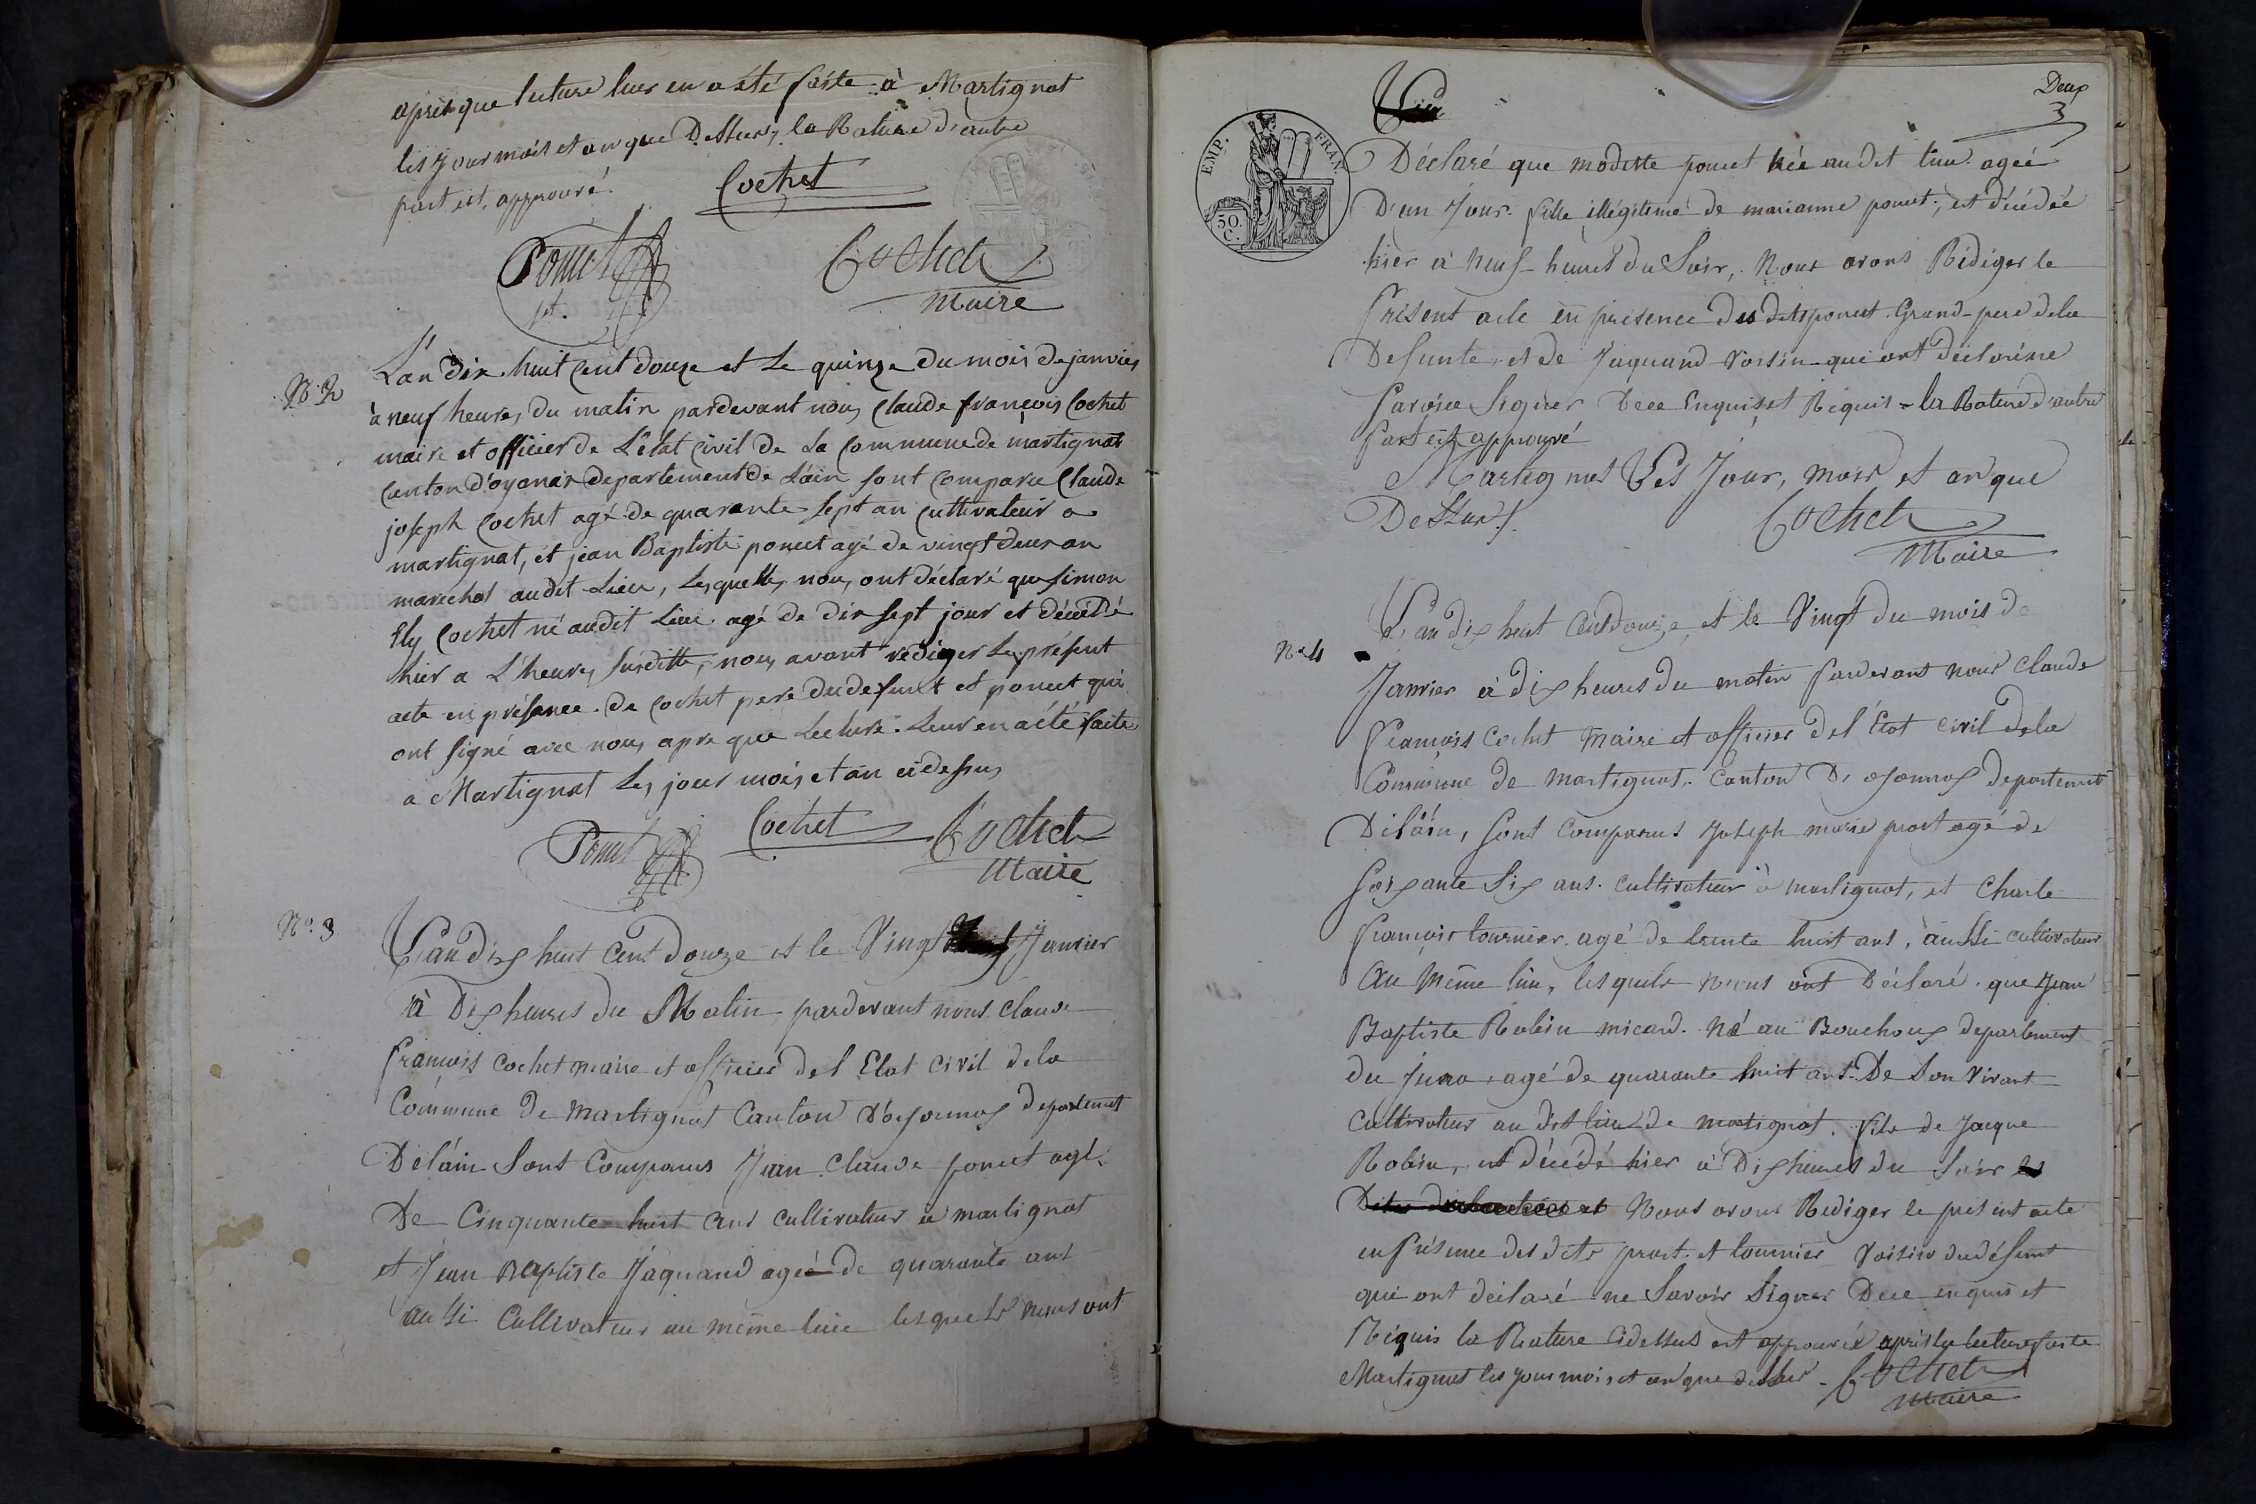 apres que lecture leur en a été faite à Martignat
les jour mois et an que Dessus, la Rature d'autre
part est approuvé.
Cochet
Poncet
Cochet
Maire
N° 2
L'an dix huit cent douze et Le quinze du mois de janvier
à neuf heures du matin pardevant nous Claude françois Cochet
maire et officier de L'état Civil de La Commune de martignat
Canton d'oyonax departement de L'ain sont comparu Claude
joseph Cochet agé de quarante sept an Cultivateur a
martignat, et jean Baptiste poncet agé de vingt deux an
marechal audit Lieu, Lesquelles nous ont déclaré que Simon
Ely Cochet né audit Lieu agé de dix sept jour et décédé
hier a L'heures susditte, nous avont rédiger Les présent
acte en présance de Cochet pere du defunt et poncet qui
ont signé avec nous apre que Lecture Leur en a été faite
a Martignat Les jour mois et an ci dessus
Poncet
Cochet
Cochet
Maire
N° 3
L'an dix huit Cent Douze et le Vingt Janvier
à Dix heures du Matin pardevant nous Claude
françois Cochet maire et officier de l'Etat Civil de la
Commune de Martignat Canton D'oyonnax departement
De lain Sont Comparus Jean Claude poncet agé
De Cinquante huit ans cultivateur a martignat
et Jean Baptiste Jaquand agée de quarante ans
aussi Cultivateur au même lieu lesquels nous ont
Deux
3
EMP. FRAN.
50. C.
Déclaré que modeste poncet née audit lieu agée
D'un Jour fille illégitime de marianne poncet, est décédée
hier à Neuf heures du Soir, Nous avons Rédiger le
Présent acte en presence des dits poncet Grand-pere de la
Defunte, et de Jaquand Voisin qui ont déclaré ne
Savoir Signer Dece Enquis et Requis - la Rature d'autre
part est approuvé
Martignat Les Jour, mois et an que
Dessus.
Cochet
Maire
N° 4
L'an dix huit Cent Douze, et le Vingt du mois de
Janvier à dix heures du matin Pardevant nous Claude
François Cochet Maire et officier de l'Etat Civil de la
Commune de Martignat Canton D'oyonnax departement
De lain, Sont Comparus Joseph marie prost agé de
Soixante Six ans cultivateur à martignat, et Charle
François tournier agé de trente huit ans, aussi cultivateur
au même lieu, lesquels nous ont Déclaré que Jean
Baptiste Robin micard né au Bouchoux departement
du Jura, agé de quarante huit ans De Son Vivant
Cultivateur au dit lieu de martignat, fils de Jacque
Robin, est décédé hier à Dix heures du Soir
Nous avons Rediger le present acte
en présence des dits prost et tournier Voisins du défunt
qui ont déclaré ne Savoir Signer Dece enquis et
Réquis la Rature cidessus est approuvée après la lecture faite
Martignat les jour mois et an que dessus. Cochet
Maire